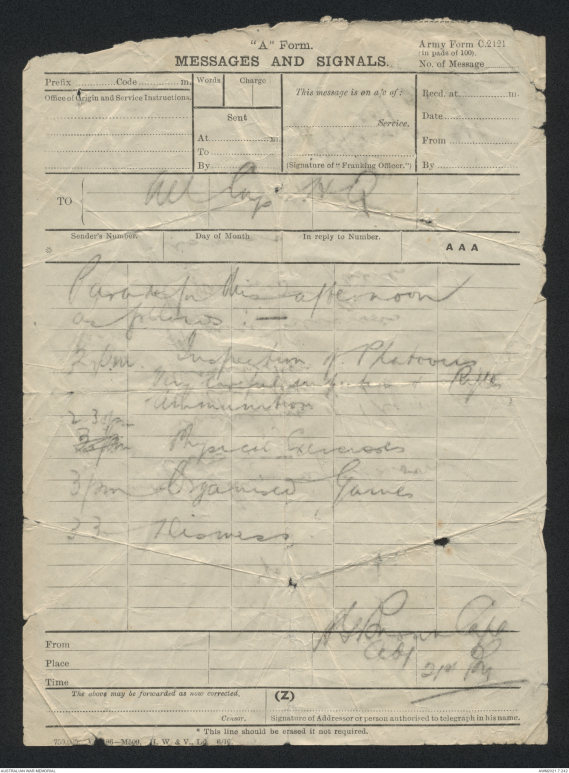 "A" Form.
MESSAGES AND SIGNALS.
Army Form C.2121
(in pads of 100).
No. of Message
Prefix Code m.
Words
Charge
Office of Origin and Service Instructions.
Sent
At m.
To
By
This message is on a/c of :
Service.
(Signature of "Franking Officer.")
Recd. at m.
Date
From
By
TO
All Coy H.Q
Sender's Number.
Day of Month
In reply to Number.
AAA
*
Parade for this afternoon
as follows :—
2 pm. Inspection of Platoons
Very careful inspection of Rifles
Ammunition
2.30pm
Physical Exercises
3 pm Organised Games
3.30 Dismiss
Capt
21st Bn
From
Place
Time
The above may be forwarded as now corrected.
(Z)
Censor.
Signature of Addressor or person authorised to telegraph in his name.
* This line should be erased if not required.
H. W. & V., Ld.
AUSTRALIAN WAR MEMORIAL
AWM2021.7.242